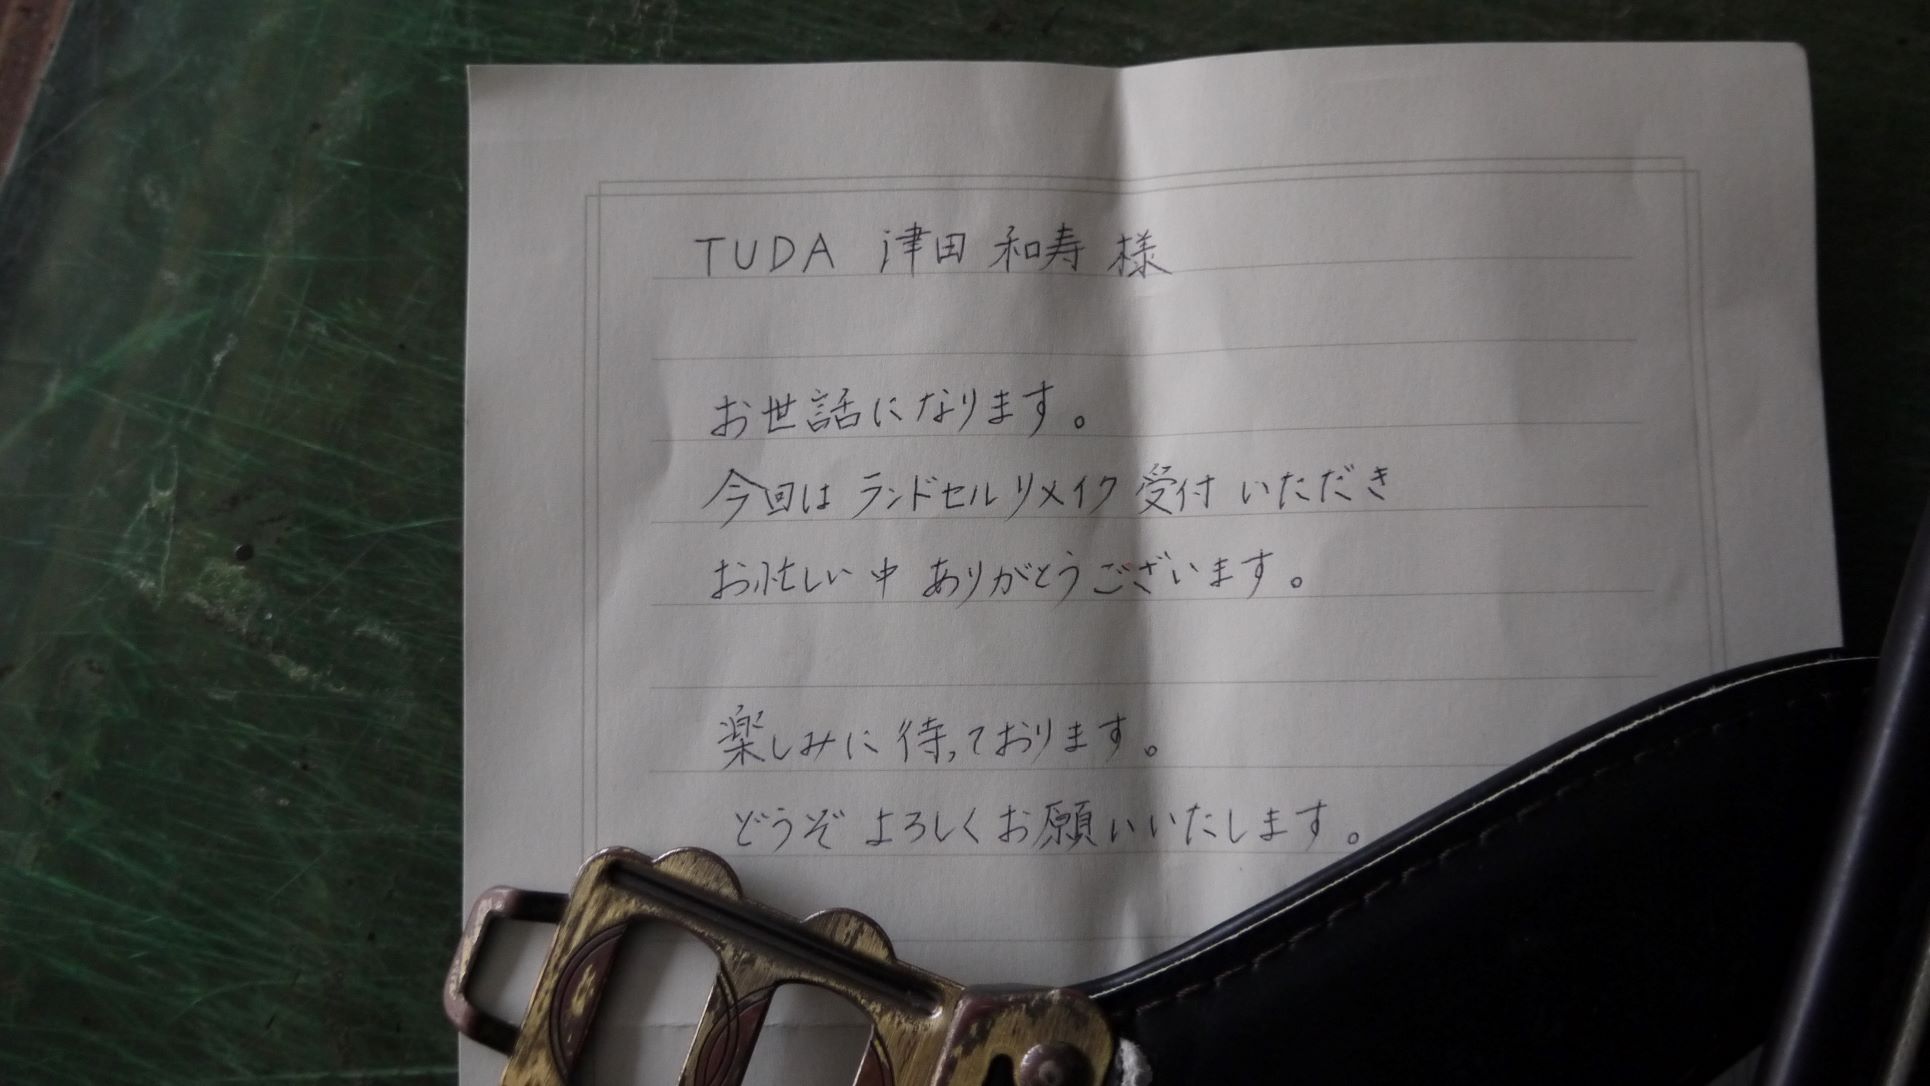 TUDA 津田 和寿 様
お世話になります。
今回は ランドセルリメイク 受付 いただき
お忙しい中 ありがとうございます。
楽しみに 待っております。
どうぞ よろしくお願いいたします。